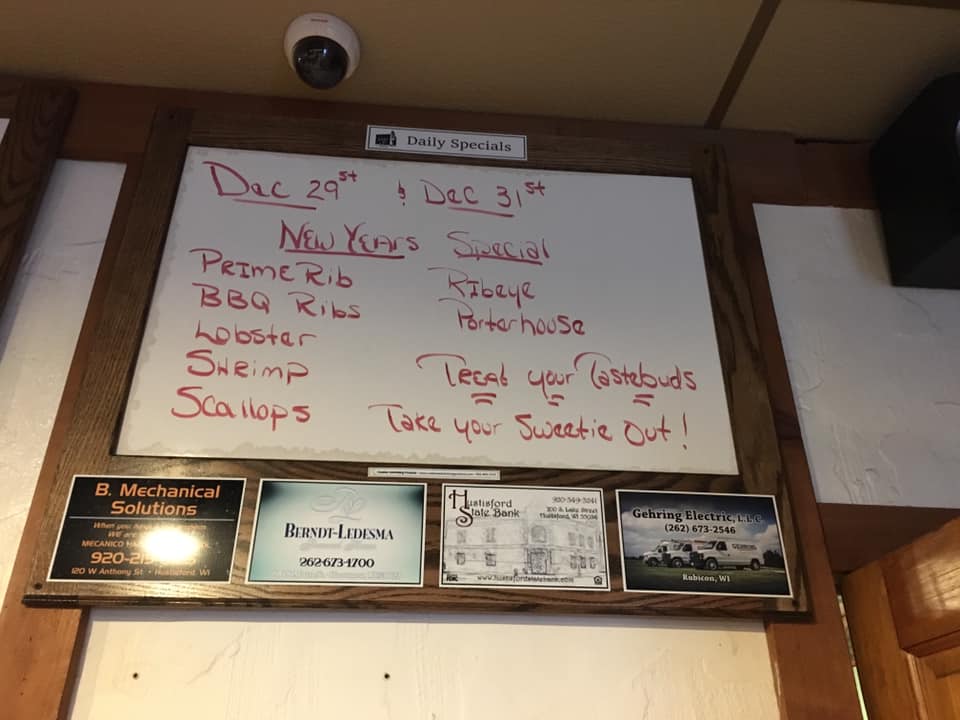 Daily Specials
Dec 29st & Dec 31st
New Years Special
Prime Rib
BBQ Ribs
Lobster
Shrimp
Scallops
Ribeye
Porterhouse
Treat your Tastebuds
Take your Sweetie Out!
B. Mechanical
Solutions
When you
We are
MECANICO
920-2
120 W Anthony St • Hustisford, WI
BERNDT-LEDESMA
262-673-1700
Hustisford
State Bank
920-349-3241
200 S. Lake Street
Hustisford, WI 53034
www.hustisfordstatebank.com
Gehring Electric, L.L.C.
(262) 673-2546
Rubicon, WI